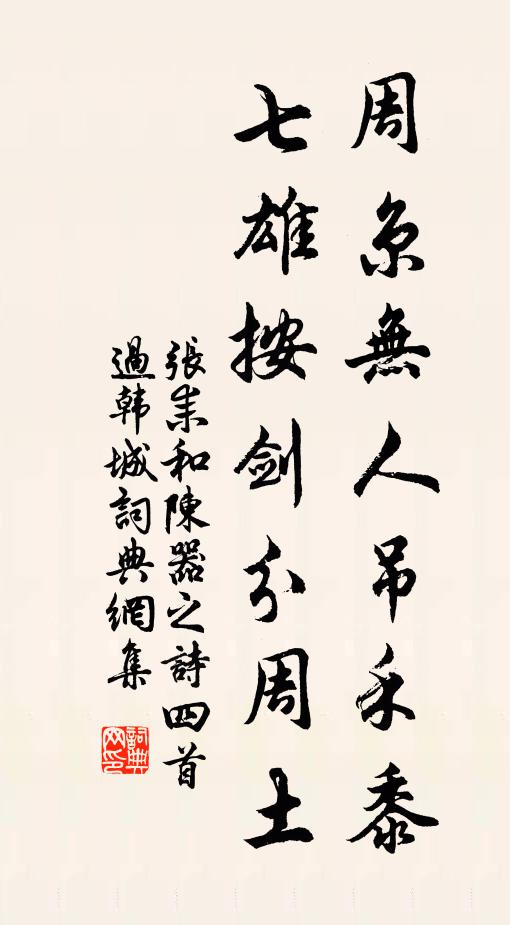 周京無人吊禾黍
七雄按剑分周土
張耒和陳器之詩四首
過韩城詞典網集
詞典网印